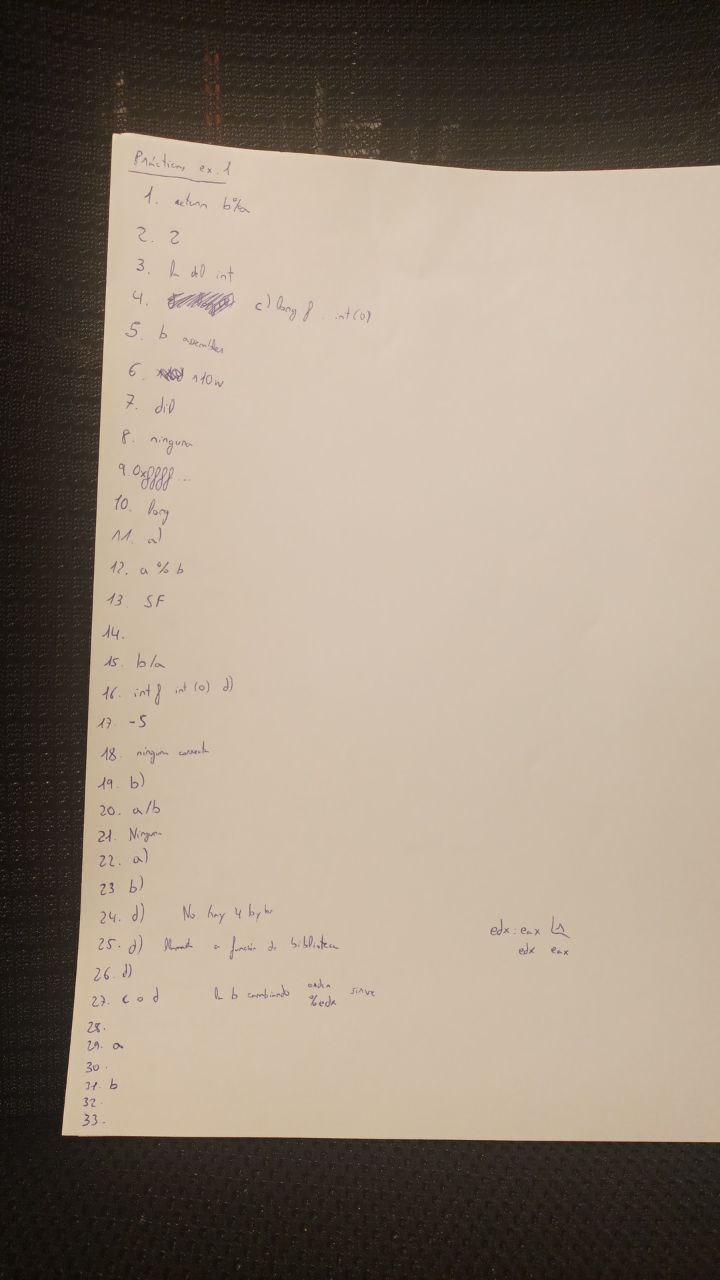 Prácticas ex. 1
1. return b%a
2. 2
3. la del int
4. c) long f int(0)
5. b assembler
6. n10w
7. dil
8. ninguna
9. 0xffff...
10. long
11. a)
12. a % b
13. SF
14.
15. b/a
16. int f int(0) d)
17. -5
18. ninguna correcta
19. b)
20. a/b
21. Ninguna
22. a)
23 b)
24. d) No hay 4 bytes
25. d) llamada a función de biblioteca
26. d)
27. c o d la b cambiando orden %edx sirve
28.
29. a
30.
31. b
32.
33.
edx:eax
edx eax